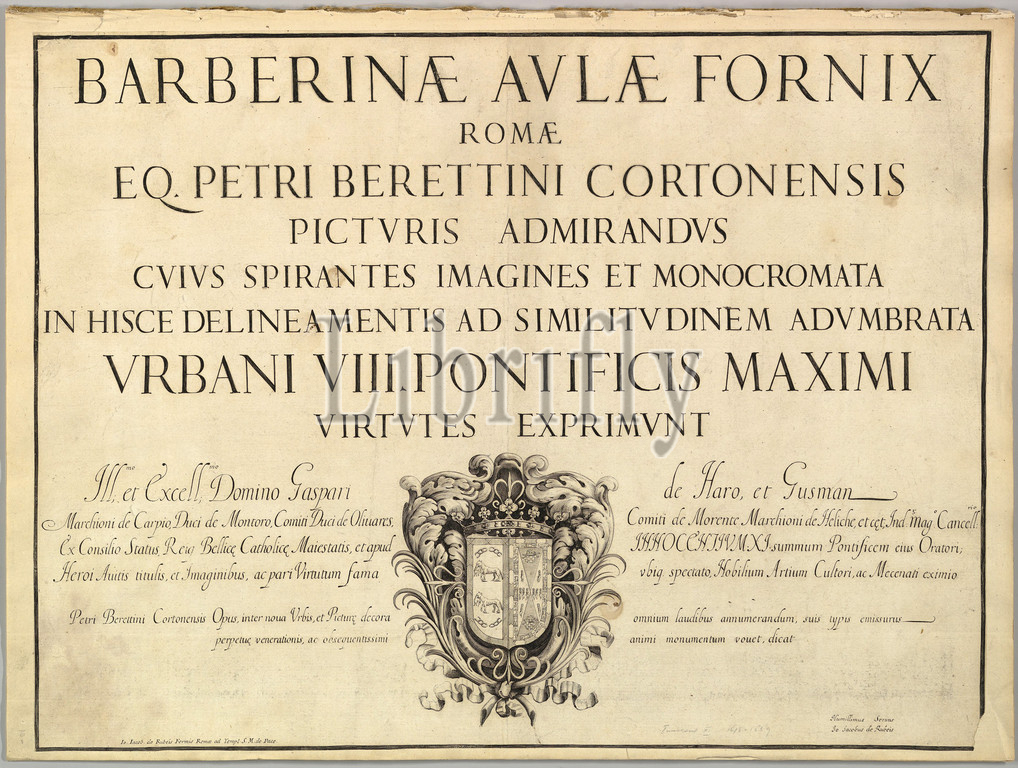 BARBERINÆ AVLÆ FORNIX
ROMÆ
EQ. PETRI BERETTINI CORTONENSIS
PICTVRIS ADMIRANDVS
CVIVS SPIRANTES IMAGINES ET MONOCROMATA
IN HISCE DELINEAMENTIS AD SIMILITVDINEM ADVMBRATA
VRBANI VIII. PONTIFICIS MAXIMI
VIRTVTES EXPRIMVNT
Librifly
Ill.mo et Excell.mo Domino Gaspari de Haro, et Gusman
Marchioni de Carpio, Duci de Montoro, Comiti Duci de Oliuares, Comiti de Morente, Marchioni de Heliche, et cęt, Ind. Mag. Cancell.
Ex Consilio Status Reiq. Bellicę Catholicę Maiestatis, et apud summum Pontificem eius Oratori;
Heroi Auitis titulis, et Imaginibus, ac pari Virtutum fama vbiq. spectato, Nobilium Artium Cultori, ac Mecenati eximio
Petri Berettini Cortonensis Opus, inter noua Vrbis, et Picturę decora omnium laudibus annumerandum, suis typis emissurus
perpetuę venerationis, ac obsequentissimi animi monumentum vouet, dicat
Humillimus Seruus
Io Iacobus de Rubeis
Io. Iacob. de Rubeis Formis Romæ ad Templ. S. M. de Pace.